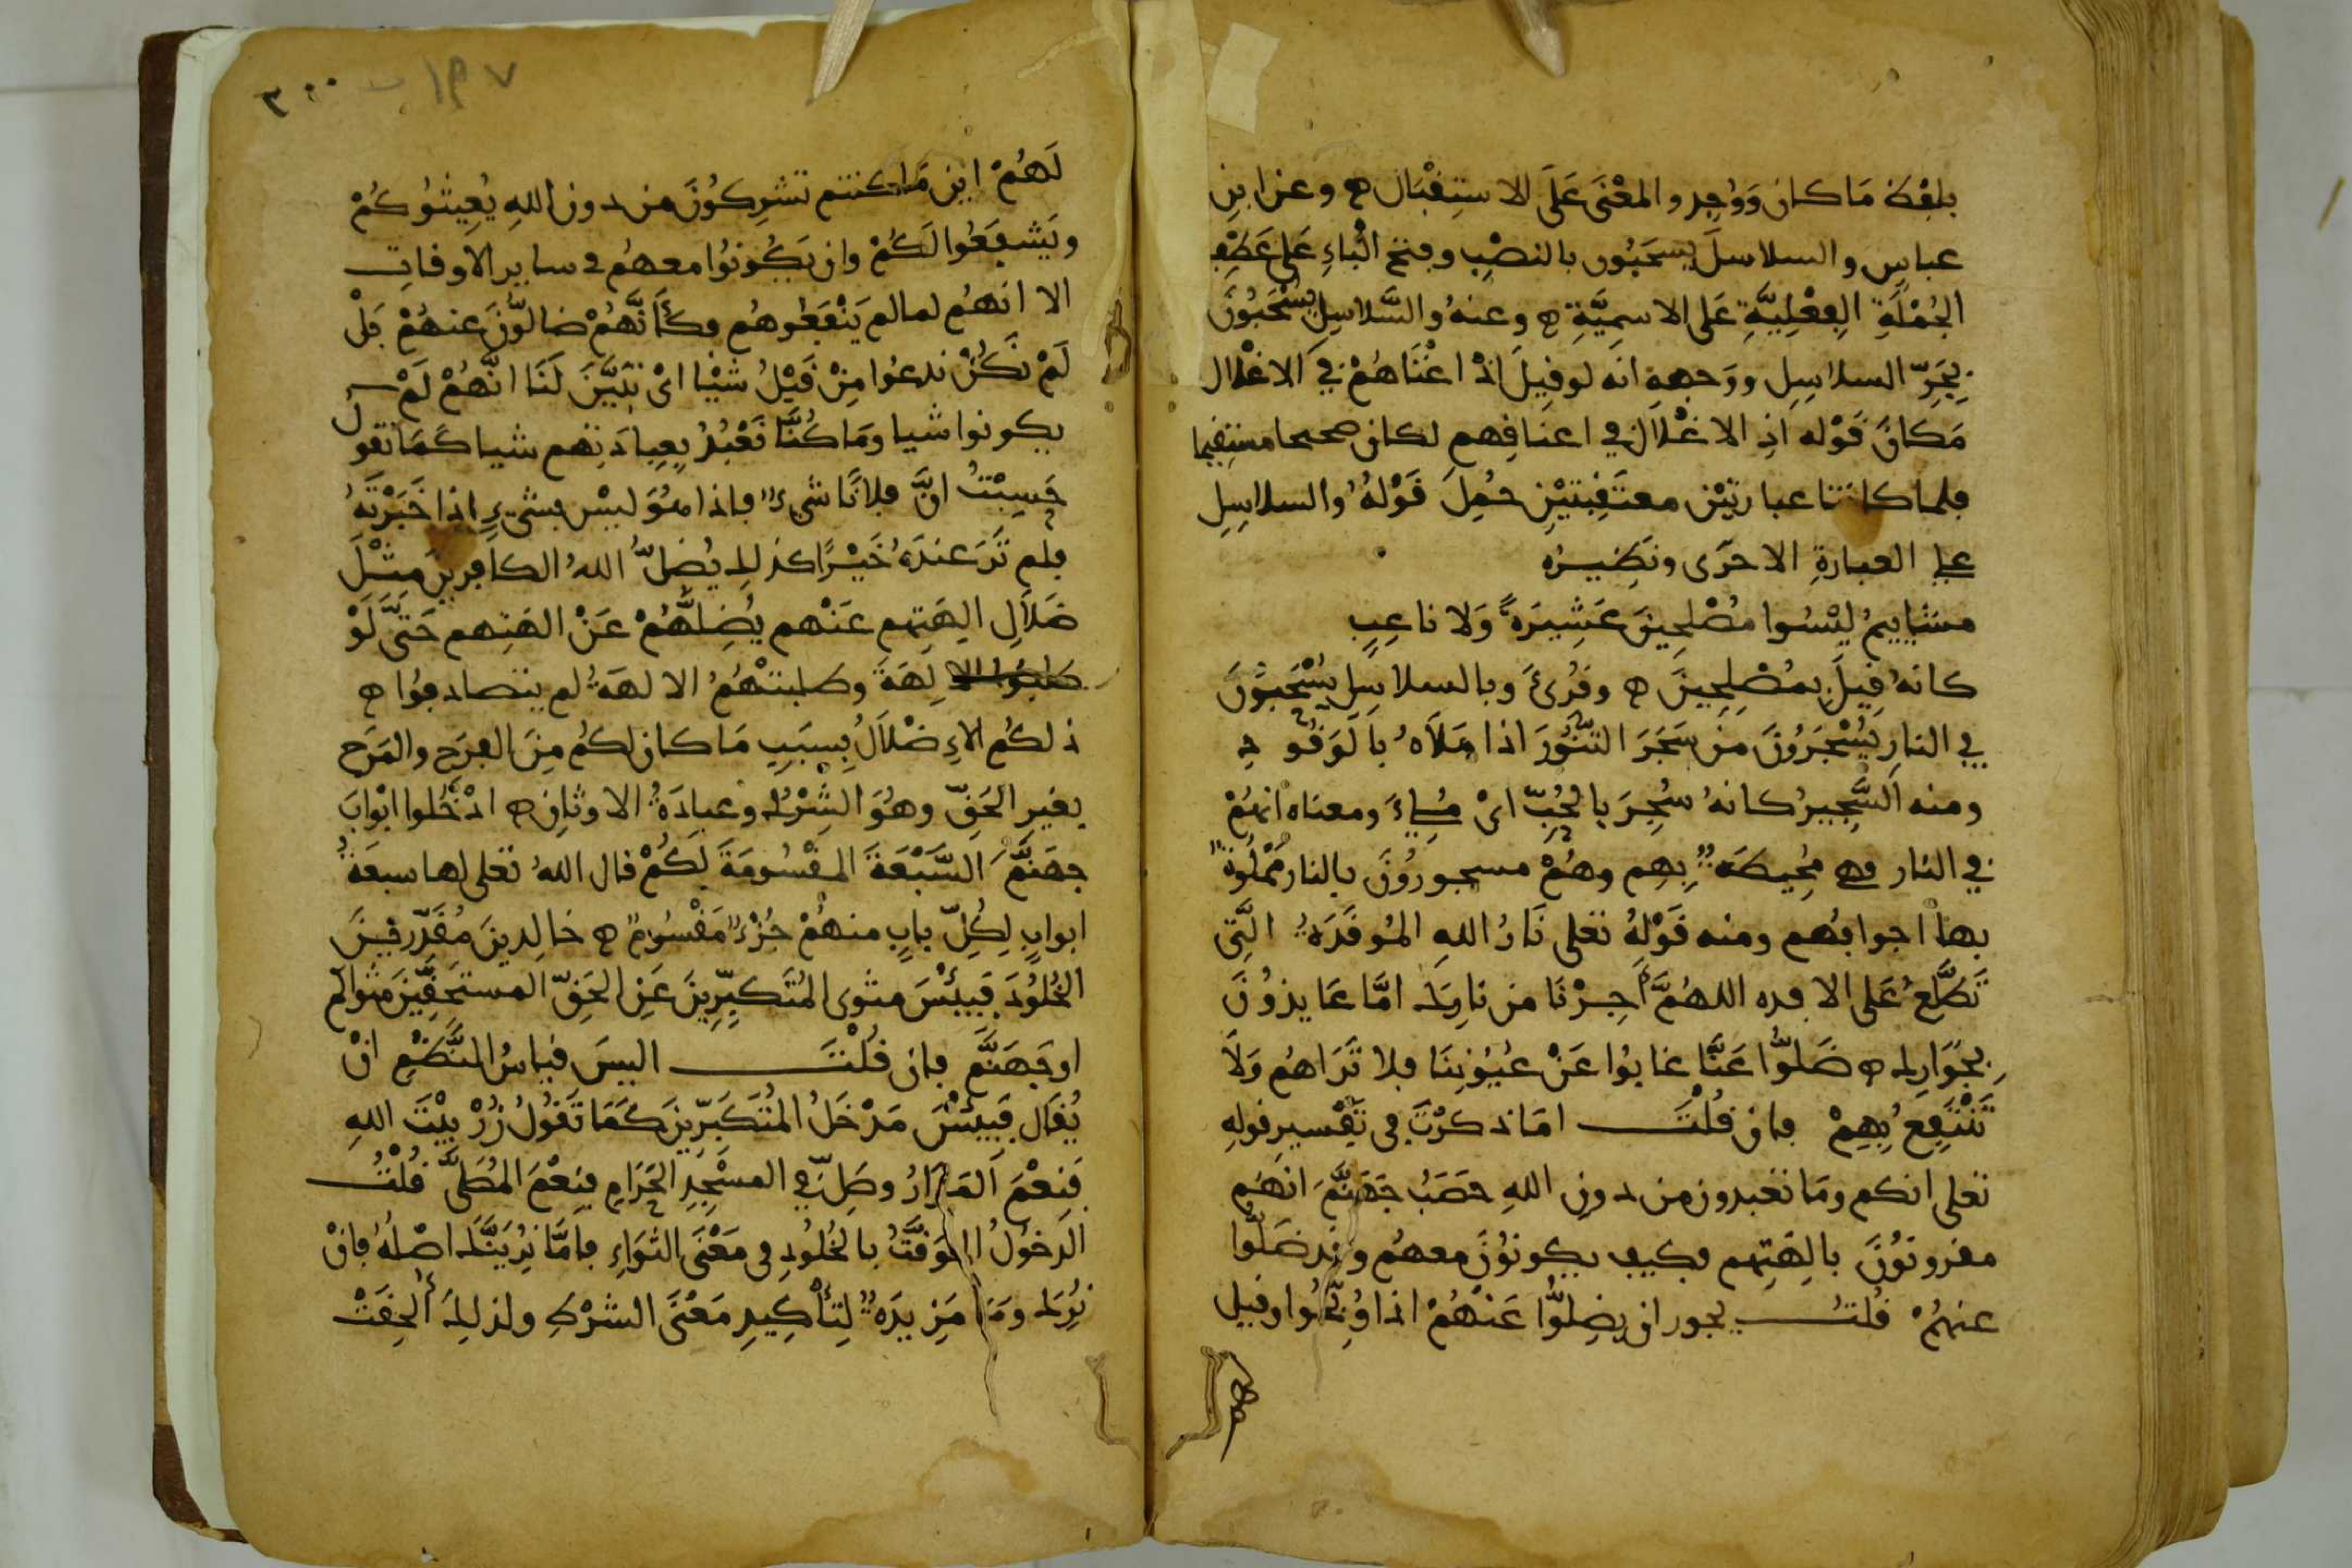 بلفظ مَا كان وَوُجِد والمعْنَى عَلَى الاستِقْبَال ه وعن ابنِ
عباسٍ والسلاسلَ يسحَبُون بالنصْبِ وفتح الْيَاءِ عَلى عَطْفِ
الجُمْلَةِ الفِعْلِيَّةِ عَلى الاسمِيَّةِ ه وعنهُ والسَّلاسِلِ يُسْحَبُونَ
بِجَرِّ السلاسِلِ ووَجهه انه لو قِيلَ اذْ اعْنَاقهُمْ فِي الاغْلال
مَكانَ قَوْله اذِ الاغْلاَل في اعناقِهمِ لكان صحيحا مستقيما
فلما كانتا عبارتيْن معتَقِبتيْنِ حُمِلَ قَوْلهُ والسلاسِلِ
على العبارةِ الاخرَى ونَظِيرُه
مشايِيمُ ليْسُوا مُصْلِحِينَ عَشِيرَةً وَلا ناعِبٍ
كانهُ قِيلَ بمُصْلِحِينَ ه وقُرِئَ وبالسلاسِلِ يُسْحَبُونَ
في النارِ يُسْجَرُونَ مِن سَجَرَ التنُّورَ اذا مَلاَهُ بالوَقُودِ
ومنه السَّجِيرُ كانهُ سُجِرَ بالحُبِّ ايْ مُلِئَ ومعناه انهُمْ
في النار وهي مُحِيطَةٌ بِهِم وهُمْ مسجورُونَ بالنار مَمْلُوةٌ
بها اجوافُهم ومنه قَوْلهُ تعلى نَارُ اللهِ المُوقَدَةُ الَّتِي
تَطَّلِعُ عَلى الافده اللهُمَّ أَجِرْنَا من نارِكَ امَّا عَايذُونَ
بجَوَارِكَ ه ضَلُّوا عَنَّا غابُوا عَنْ عُيُونِنَا فلا نَرَاهُم وَلاَ
نَنْتَفِعُ بِهِمْ فان قُلْتَ اما ذكرْتَ في تَفْسيرِ قولهِ
تعلى انكم ومَا تعبدون من دونِ اللهِ حصَبُ جَهَنَّمَ انهُم
مقرونوُنَ بالِهَتِهم فكيف يكونوُنَ معهُم وقد ضَلُّوا
عنهُمْ قُلتُ يجوز ان يضِلُّوا عَنْهُمْ اذا وُبِّخُوا وقيل
٣٠٠
١٩٧ ب
لَهُمْ اين مَا كنتم تشرِكُونَ من دون اللهِ يُغِيثُوكُمْ
ويَشفَعُوا لَكُمْ وان يَكُونُوا معهُم في ساير الاوقاتِ
الا انهُم لما لم يَنْفَعُوهُم فكأنَّهُمْ ضالوُّنَ عنهُمْ بَلْ
لَمْ نَكُنْ ندعُوا مِنْ قَبْلُ شيْا ايْ تبَيَّنَ لَنَا انَّهُمْ لَمْ
يكونوا شيا ومَا كُنَّا نَعْبُدُ بِعِبادَتِهم شيا كَمَا تقول
حَسِبْتُ انَّ فلانًا شيءٌ فاذا هُوَ ليْس بشيءٍ اذا خَبَرْتَهُ
فلم تَرَ عندَهُ خَيْرًا كذلِكَ يُضِلُّ اللهُ الكافِرِينَ مِثْلَ
ضَلاَلِ الِهَتِهم عَنْهم يُضِلُّهُمْ عَنْ الهَتِهم حَتَّى لَوْ
طلبُوا الالِهَةَ وطلبتْهُمُ الالهَةُ لم يتصادفُوا ه
ذلكُم الاِضْلاَلُ بِسبَبِ مَا كان لكُم مِنَ الفرَحِ والمَرَحِ
بغيرِ الحَقِّ وهُوَ الشِرْكُ وعبادَةُ الاوثانِ ه ادْخُلوا ابْوابَ
جهَنَّمَ السَّبْعَةَ المقْسُومَةَ لَكُمْ قال اللهُ تعلى لها سبعَةُ
ابوابٍ لِكُلِّ بابٍ منهُمْ جُزْءٌ مَقْسُومٌ ه خالِدينَ مُقَدِّرِينَ
الخُلُودَ فَبِئْسَ مثوى المُتَكبِّرِينَ عَنِ الحَقِّ المستَخِفِّينَ مثواكم
او جَهَنَّم فان قُلْتَ اليسَ قياسُ النَّظْمِ انْ
يُقال فَبِئْسَ مَدْخَلُ المُتَكَبِّرِينَ كَمَا تَقُولُ زُرْ بيْتَ اللهِ
فَنِعْمَ المَزَارُ وصَلِّ في المسْجِدِ الحَرَامِ فنِعْمَ المُصَلَّى قُلْتُ
الدخولُ المُوَقَّتُ بالخُلُودِ في مَعْنَى الثَوَاءِ فاِمَّا نُرِيَنَّكَ اصْلهُ فانْ
نُرِكَ ومَا مَزِيدَةٌ لِتأكِيدِ مَعْنَى الشرْطِ ولذلِكَ أُلحِقَتْ